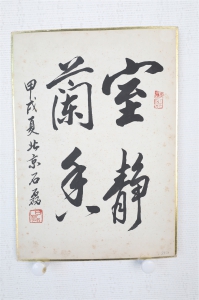 室静
蘭香
甲戌夏北京石磊